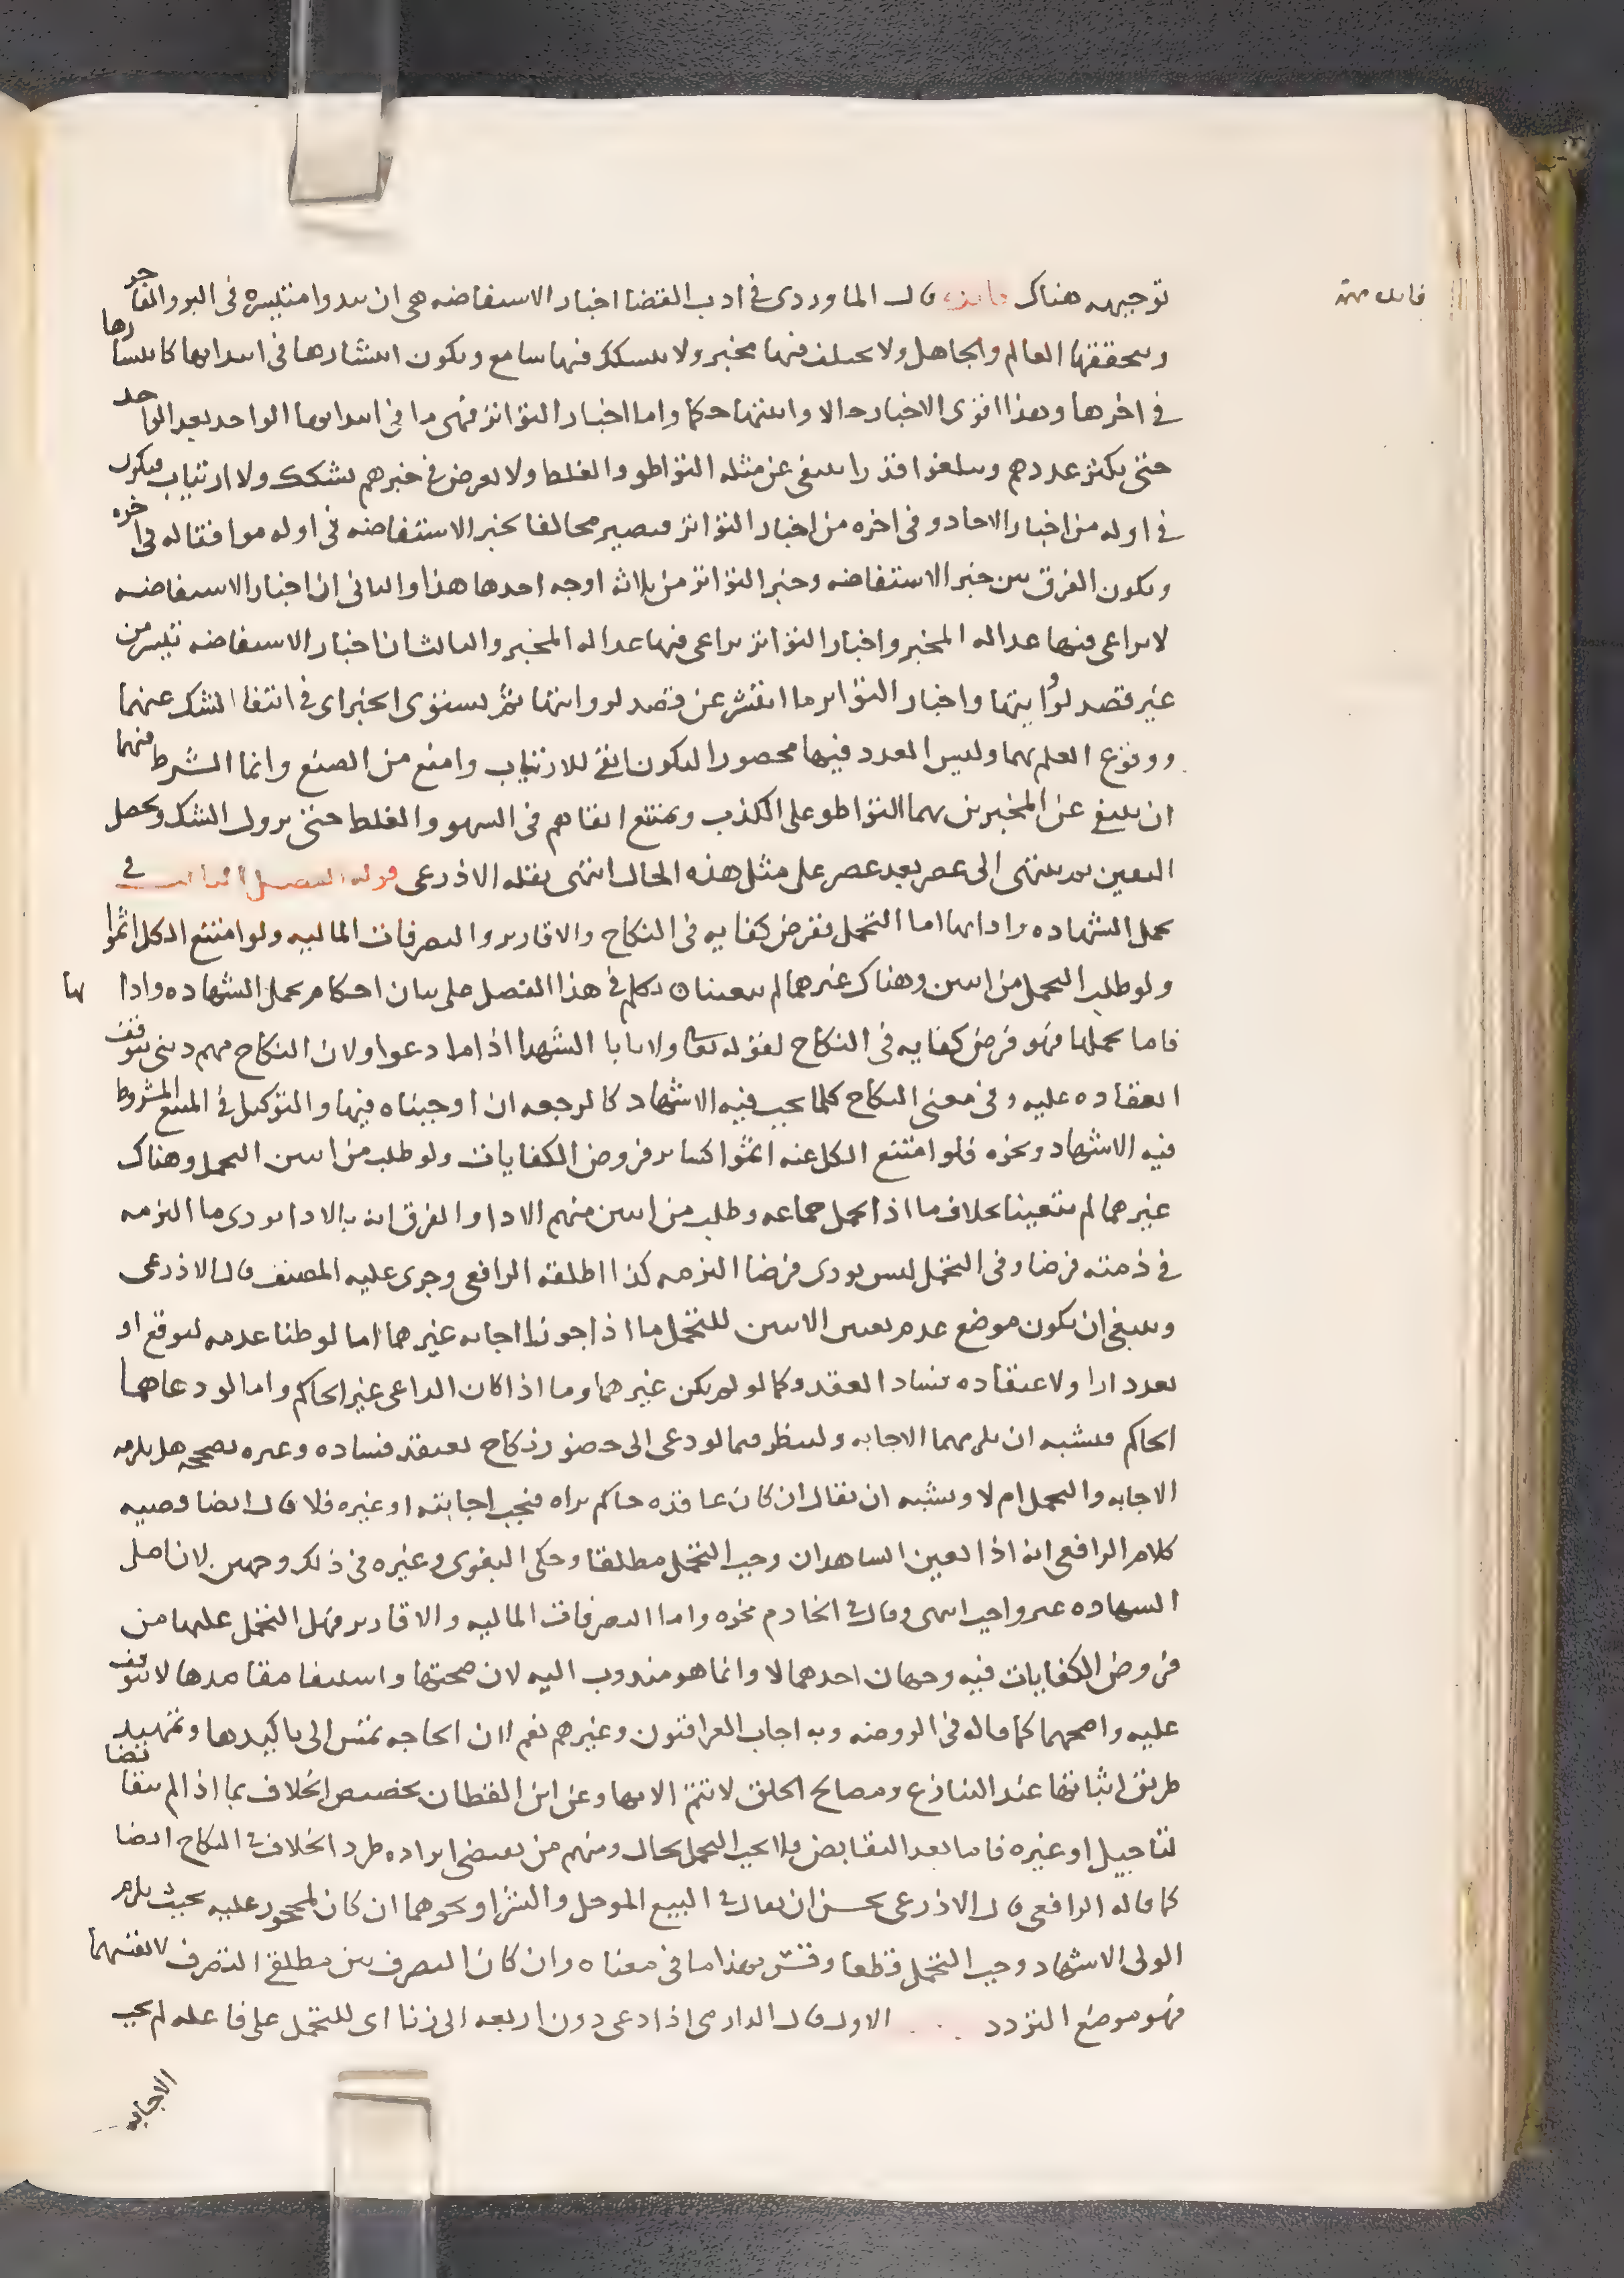 فائدة مهمة
توجيهه هناك فائدة قال الماوردي في ادب القضا اخبار الاستفاضه هي ان تبدوا منتشره في البر والفاجر
ويتحققها العالم والجاهل ولا يختلف فيها مخبر ولا يتشكك فيها سامع ويكون انتشارها في ابتدايها كانتشارها
في اخرها وهذا اقوى الاخبار حالا واثبتها حكما واما اخبار التواتر فهي ما في ابتدايها الواحد بعد الواحد
حتى يكثر عددهم ويبلغوا قدرا ينتفي عن مثله التواطو والغلط ولا يعرض في خبرهم تشكك ولا ارتياب فيكون
في اوله من اخبار الاحاد وفي اخره من اخبار التواتر فيصير مخالفا لخبر الاستفاضه في اوله موافقا له في اخره
ويكون الفرق بين خبر الاستفاضه وخبر التواتر من ثلاثه اوجه احدها هذا والثاني ان اخبار الاستفاضه
لا يراعى فيها عداله المخبر واخبار التواتر يراعى فيها عداله المخبر والثالث ان اخبار الاستفاضه تنتشر من
غير قصد لروايتها واخبار التواتر ما انتشر عن قصد لروايتها ثم يستوي الخبران في انتفا الشك عنهما
ووقوع العلم بهما وليس العدد فيهما محصورا ليكون انفى للارتياب وامنع من الصنع وانما الشرط فيهما
ان ينتفي عن المخبرين بهما التواطو على الكذب ويمتنع اتفاقهم في السهو والغلط حتى يزول الشك ويحصل
اليقين ثم ينتهي الى عصر بعد عصر على مثل هذه الحال انتهى نقله الاذرعي قوله الفصل الثالث في
تحمل الشهاده وادايها اما التحمل ففرض كفايه في النكاح والاقارير والتصرفات الماليه ولو امتنع الكل اثموا
ولو طلب التحمل من اثنين وهناك غيرهما لم يتعينا تكلم في هذا الفصل على بيان احكام تحمل الشهاده وادايها
فاما تحملها فهو فرض كفايه في النكاح لقوله تعالى ولا يابا الشهدا اذا ما دعوا ولان النكاح مهم ديني يتوقف
انعقاده عليه وفي معنى النكاح كلما يجب فيه الاشهاد كالرجعه ان اوجبناه فيها والتوكيل في البيع المشروط
فيه الاشهاد ونحوه فلو امتنع الكل عنه اثموا كساير فروض الكفايات ولو طلب من اثنين التحمل وهناك
غيرهما لم يتعينا بخلاف ما اذا تحمل جماعه وطلب من اثنين منهم الادا والفرق انه بالادا يودي ما التزمه
في ذمته فرضا وفي التحمل ليس يودي فرضا التزمه كذا اطلقه الرافعي وجرى عليه المصنف قال الاذرعي
وينبغي ان يكون موضع عدم تعين الاثنين للتحمل ما اذا جوزنا اجابه غيرهما اما لو ظنا عدمه لتوقع او
تعذر اداء ولاعتقاده فساد العقد فكما لو لم يكن غيرهما وما اذا كان الداعي غير الحاكم واما لو دعاهما
الحاكم فيشبه ان يلزمهما الاجابه ولينظر فيما لو دعي الى حضور نكاح يعتقد فساده وغيره يصححه هل يلزمه
الاجابه والتحمل ام لا ويشبه ان يقال ان كان عاقده حاكم يراه فتجب اجابته او غيره فلا قال ايضا وقضيه
كلام الرافعي انه اذا تعين الشاهدان وجب التحمل مطلقا وحكى البغوي وغيره في ذلك وجهين لان اصل
الشهاده غير واجب انتهى وقال في الخادم نحوه واما التصرفات الماليه والاقارير فهل التحمل عليها من
فروض الكفايات فيه وجهان احدهما لا وانما هو مندوب اليه لان صحتها واستيفا مقاصدها لا يتوقف
عليه واصحهما كما قاله في الروضه وبه اجاب العراقيون وغيرهم نعم لان الحاجه تمس الى تاكيدها وتمهيد
طريق اثباتها عند التنازع ومصالح الخلق لا تتم الا بها وعن ابن القطان تخصيص الخلاف بما اذا لم يتقابضا
لتاجيل او غيره فاما بعد التقابض فلا يجب التحمل بحال ومنهم من يقتضي ايراده طرد الخلاف في النكاح ايضا
كما قاله الرافعي قال الاذرعي يحسن ان يقال في البيع الموجل والشرا ونحوهما ان كان لمحجور عليه بحيث يلزم
الولي الاشهاد وجب التحمل قطعا وقس بهذا ما في معناه وان كان التصرف بين مطلقي التصرف لانفسهما
فهو موضع التردد الاول قال الدارمي اذا دعي دون اربعه الى زنا اي للتحمل على فاعله لم يجب
الاجابه